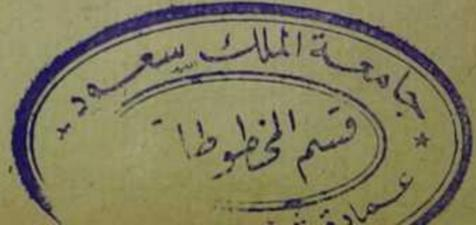 جامعة الملك سعود
قسم المخطوطات
عمادة